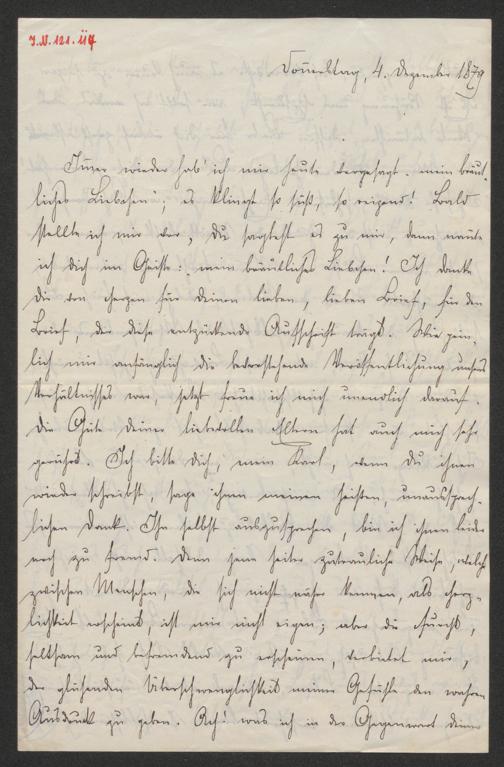 I.N. 121.
Donnerstag, 4. Dezember 1879
Immer wieder hab' ich mir heute vorgesagt „mein bräut-
liches Liebchen"; es klingt so süß, so reizend! Bald
stellte ich mir vor, Du sagtest es zu mir, dann nannte
ich Dich im Geiste: mein bräutliches Liebchen! Ich danke
Dir von Herzen für Deinen lieben, lieben Brief, für den
Brief, der diese entzückende Aufschrift trägt. Wie pein-
lich mir anfänglich die bevorstehende Veröffentlichung unseres
Verhältnisses war, jetzt freue ich mich unendlich darauf.
Die Güte Deiner liebevollen Eltern hat auch mich sehr
gerührt. Ich bitte Dich, mein Karl, wenn Du ihnen
wieder schreibst, sage ihnen meinen heißen, unaussprech-
lichen Dank. Ihn selbst auszusprechen, bin ich ihnen leider
noch zu fremd. Denn jene heiter zutrauliche Weise, welche
zwischen Menschen, die sich nicht näher kennen, als Herz-
lichkeit erscheint, ist mir nicht eigen; aber die Furcht,
seltsam und befremdend zu erscheinen, verbietet mir,
der glühenden Überschwenglichkeit meiner Gefühle den wahren
Ausdruck zu geben. Ach! was ich in der Gegenwart Deiner